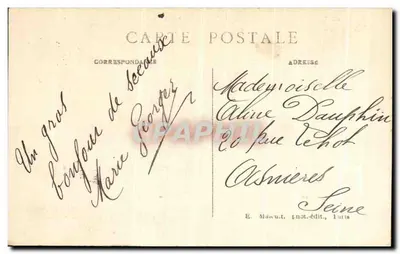 CARTE POSTALE
CORRESPONDANCE
ADRESSE
Un gros
bonjour de Sceaux
Marie Georges
Mademoiselle
Aline Dauphin
20 rue
Asnieres
Seine
CPAPHIL